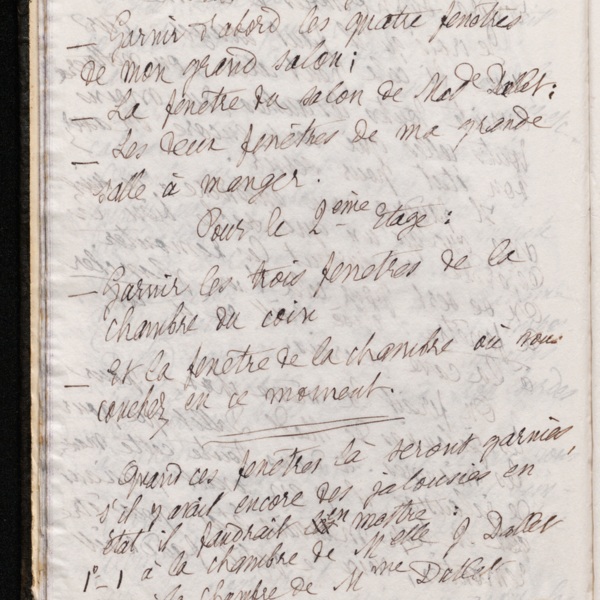 — Garnir d'abord les quatre fenêtres
de mon grand salon;
— La fenêtre du salon de Made Dallet;
— Les deux fenêtres de ma grande
salle à manger.
Pour le 2ème étage:
— Garnir les trois fenêtres de la
chambre du coin
— Et la fenêtre de la chambre où vous
couchez en ce moment.
Quand ces fenêtres là seront garnies,
s'il y avait encore des jalousies en
état il faudrait en mettre:
1°- 1 à la chambre de Melle J. Dallet
chambre de Mme Dallet